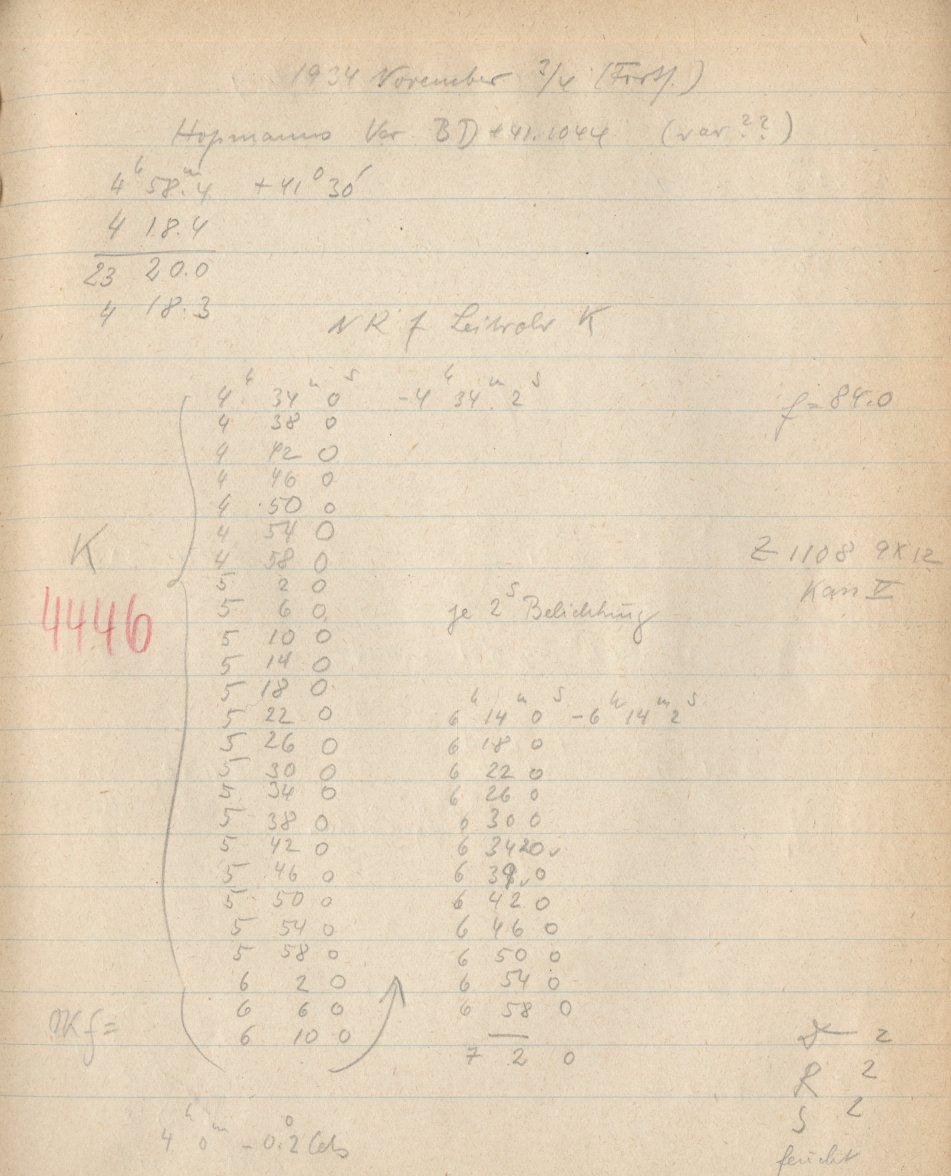 1934 November 3/4 (Forts.)
Hopmanns Var BD +41.1044 (var ??)
4ʰ 58.ᵐ4 +41° 30'
4 18.4
23 20.0
4 18.3
NR f Leitrohr K
4ʰ 34ᵐ 0ˢ -4ʰ 34ᵐ 2ˢ
f=84.0
4 38 0
4 42 0
4 46 0
4 50 0
4 54 0
4 58 0
K
4446
Z 1108 9x12
Kass V
5 2 0
5 6 0
je 2ˢ Belichtung
5 10 0
5 14 0
5 18 0
5 22 0
5 26 0
5 30 0
5 34 0
5 38 0
5 42 0
5 46 0
5 50 0
5 54 0
5 58 0
6 2 0
6 6 0
6 10 0
6ʰ 14ᵐ 0ˢ -6ʰ 14ᵐ 2ˢ
6 18 0
6 22 0
6 26 0
6 30 0
6 34 20
6 38 0
6 42 0
6 46 0
6 50 0
6 54 0
6 58 0
7 2 0
f=
2
R 2
S 2
feucht
4ʰ 0ᵐ -0.°2 Cels